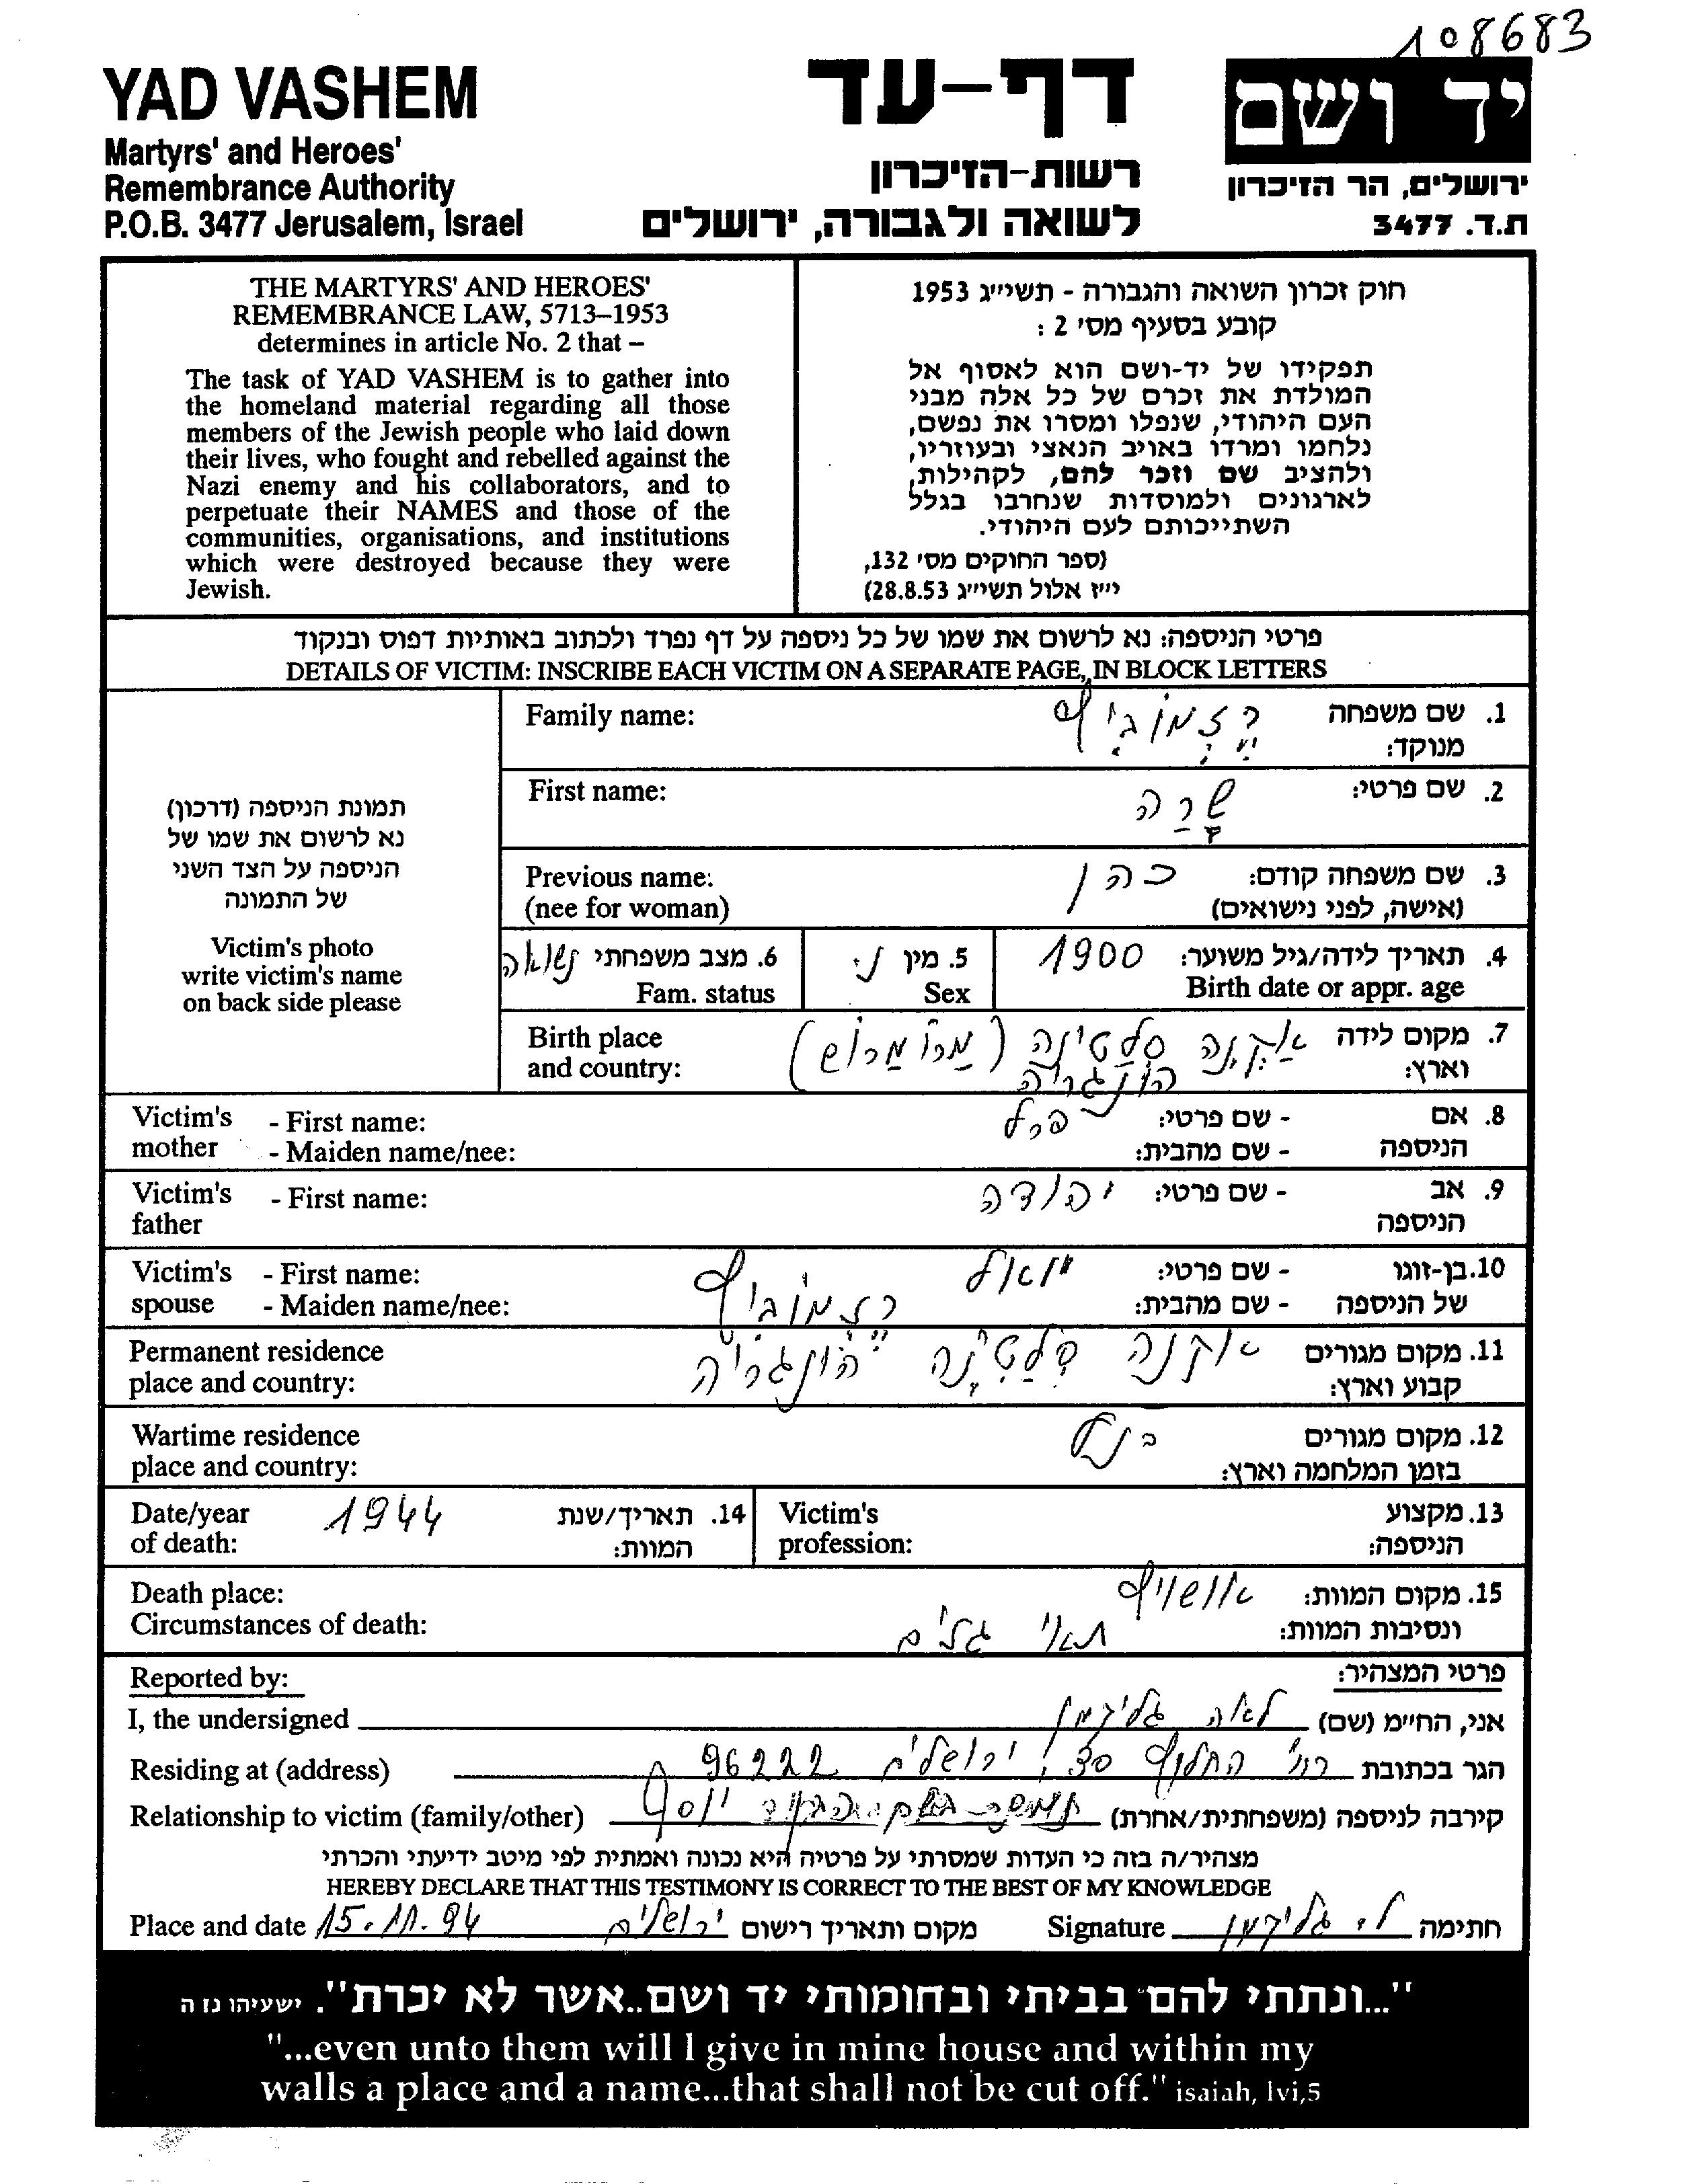 108683
YAD VASHEM
Martyrs' and Heroes'
Remembrance Authority
P.O.B. 3477 Jerusalem, Israel
דף-עד
רשות-הזיכרון
לשואה ולגבורה, ירושלים
יד ושם
ירושלים, הר הזיכרון
ת.ד. 3477
THE MARTYRS' AND HEROES'
REMEMBRANCE LAW, 5713–1953
determines in article No. 2 that –
The task of YAD VASHEM is to gather into
the homeland material regarding all those
members of the Jewish people who laid down
their lives, who fought and rebelled against the
Nazi enemy and his collaborators, and to
perpetuate their NAMES and those of the
communities, organisations, and institutions
which were destroyed because they were
Jewish.
חוק זכרון השואה והגבורה - תשי״ג 1953
קובע בסעיף מס' 2 :
תפקידו של יד-ושם הוא לאסוף אל
המולדת את זכרם של כל אלה מבני
העם היהודי, שנפלו ומסרו את נפשם,
נלחמו ומרדו באויב הנאצי ובעוזריו,
ולהציב שם וזכר להם, לקהילות,
לארגונים ולמוסדות שנחרבו בגלל
השתייכותם לעם היהודי.
(ספר החוקים מס' 132,
י״ז אלול תשי״ג 28.8.53)
פרטי הניספה: נא לרשום את שמו של כל ניספה על דף נפרד ולכתוב באותיות דפוס ובנקוד
DETAILS OF VICTIM: INSCRIBE EACH VICTIM ON A SEPARATE PAGE, IN BLOCK LETTERS
תמונת הניספה (דרכון)
נא לרשום את שמו של
הניספה על הצד השני
של התמונה
Victim's photo
write victim's name
on back side please
Family name: רזמוביץ 1. שם משפחה
מנוקד:
First name: שרה 2. שם פרטי:
Previous name: כהן 3. שם משפחה קודם:
(nee for woman) (אישה, לפני נישואים)
4. תאריך לידה/גיל משוער: 1900 5. מין נ. 6. מצב משפחתי נשואה
Birth date or appr. age Sex Fam. status
Birth place 7. מקום לידה אקנה סלטינה (מרומרוש)
and country: וארץ: הונגריה
Victim's - First name: פרל - שם פרטי: 8. אם
mother - Maiden name/nee: - שם מהבית: הניספה
Victim's - First name: יהודה - שם פרטי: 9. אב
father הניספה
Victim's - First name: יואל - שם פרטי: 10. בן-זוגו
spouse - Maiden name/nee: רזמוביץ - שם מהבית: של הניספה
Permanent residence 11. מקום מגורים אוקנה סלטינה הונגריה
place and country: קבוע וארץ:
Wartime residence 12. מקום מגורים כנ״ל
place and country: בזמן המלחמה וארץ:
Date/year 1944 14. תאריך/שנת Victim's 13. מקצוע
of death: המוות: profession: הניספה:
Death place: 15. מקום המוות: אושויץ
Circumstances of death: ונסיבות המוות: תאי גזים
Reported by: פרטי המצהיר:
I, the undersigned אני, החיימ (שם) לאה גליקמן
Residing at (address) הגר בכתובת רח' החלוץ ירושלים 96222
Relationship to victim (family/other) קירבה לניספה (משפחתית/אחרת) יוסף
מצהיר/ה בזה כי העדות שמסרתי על פרטיה היא נכונה ואמתית לפי מיטב ידיעתי והכרתי
HEREBY DECLARE THAT THIS TESTIMONY IS CORRECT TO THE BEST OF MY KNOWLEDGE
Place and date 15.11.94 מקום ותאריך רישום ירושלים Signature חתימה ל. גליקמן
"...ונתתי להם בביתי ובחומותי יד ושם..אשר לא יכרת". ישעיהו נו ה
"...even unto them will I give in mine house and within my
walls a place and a name...that shall not be cut off." isaiah, lvi,5